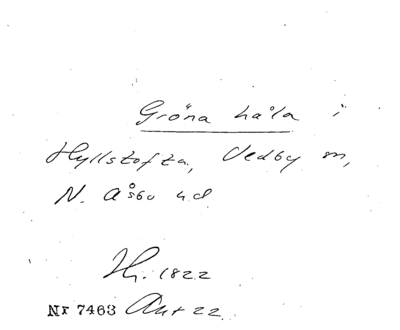 Gröna håla i
Hyllstofta, Vedby sn,
N. Åsbo hd
1822
Nr 7463 22